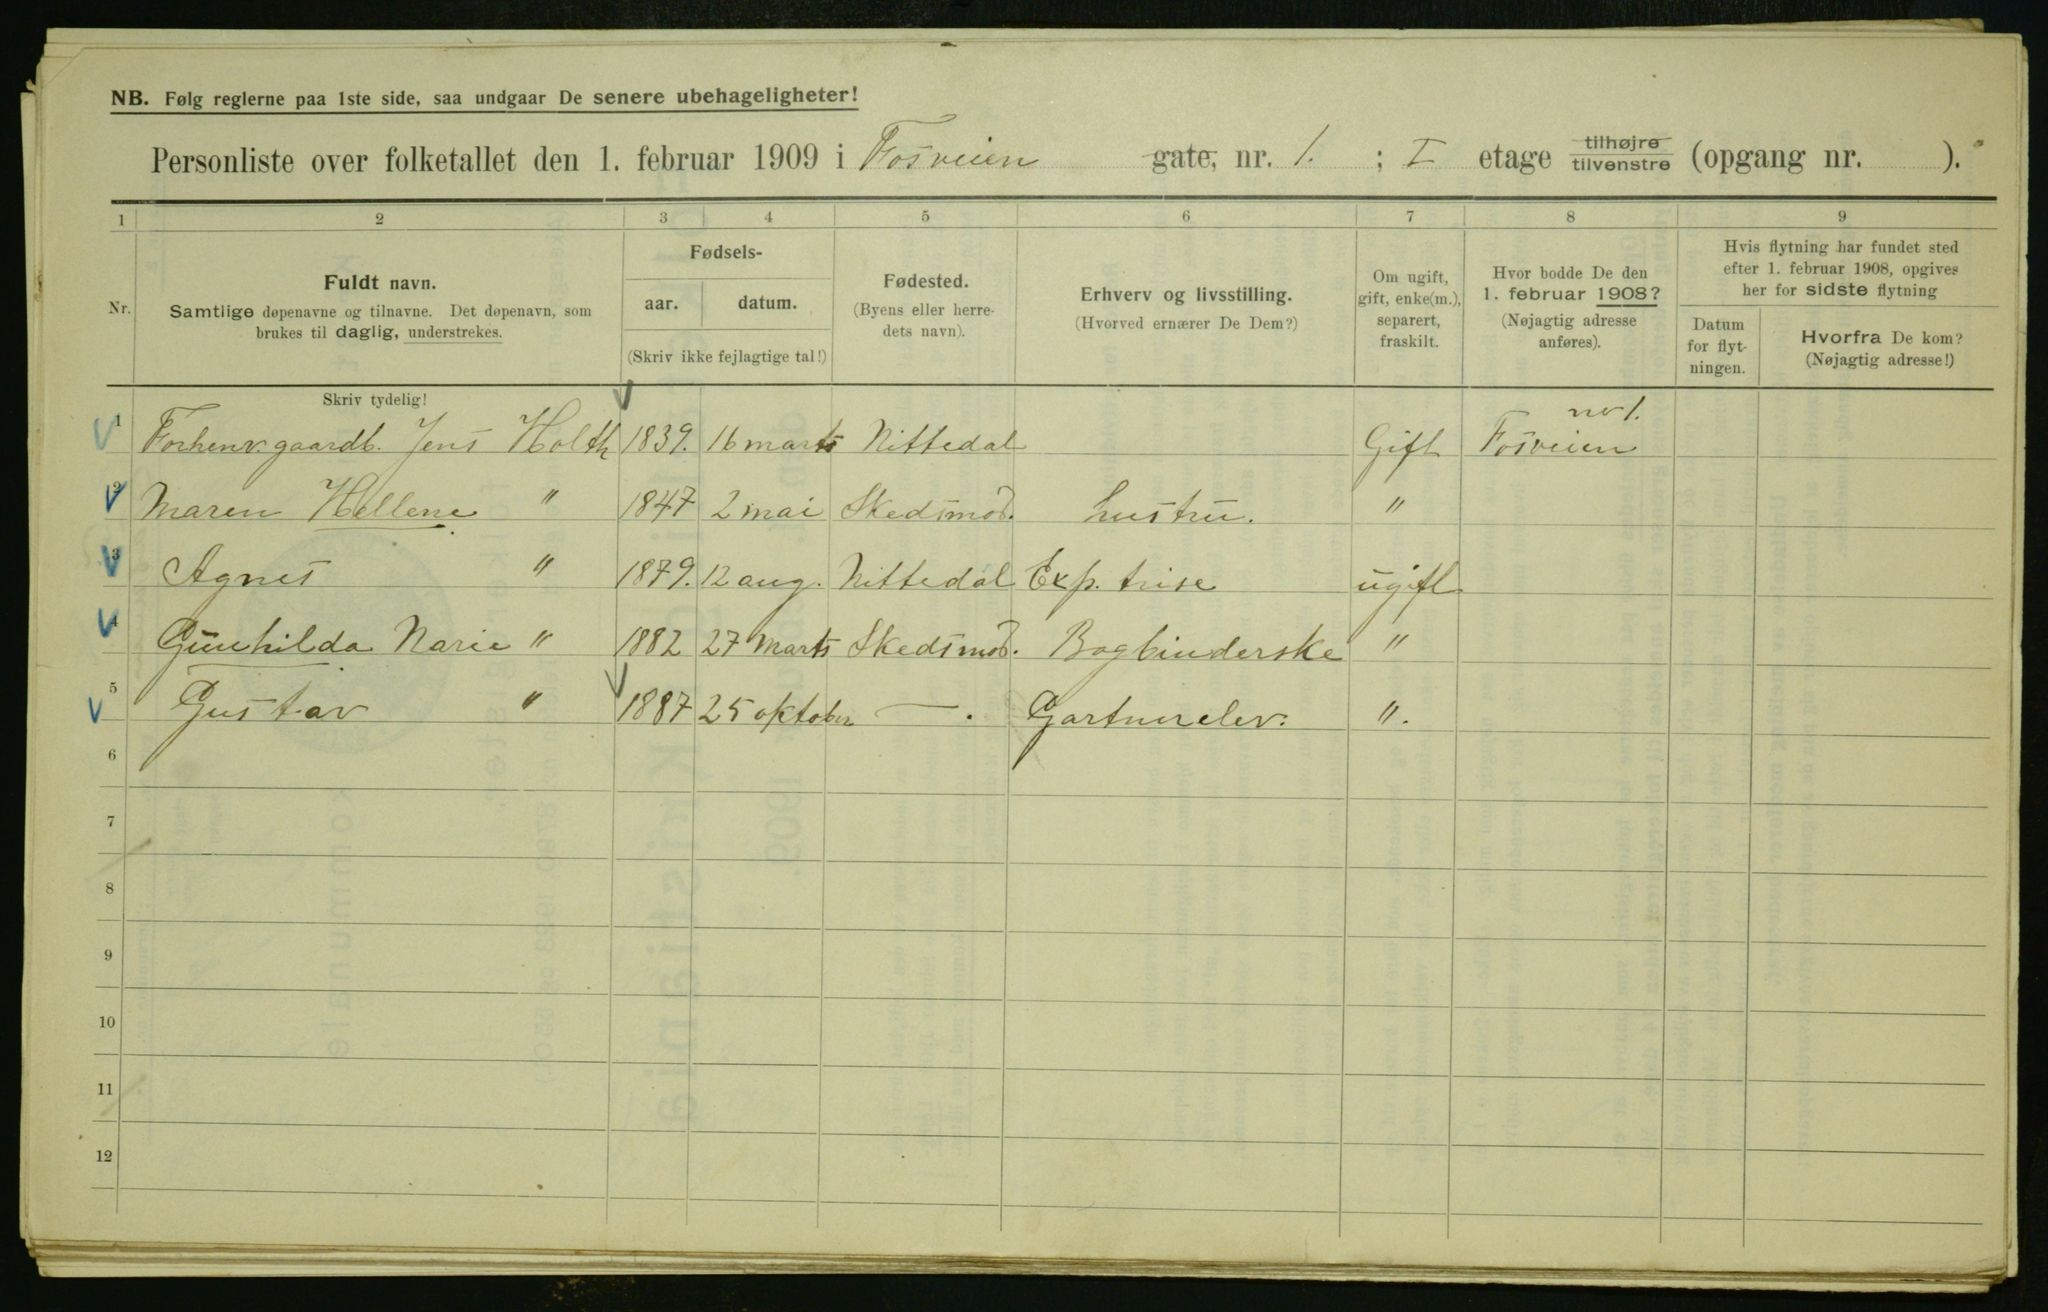 NB. Følg reglerne paa 1ste side, saa undgaar De senere ubehageligheter!
Personliste over folketallet den 1. februar 1909 i Fosveien gate, nr. 1. ; I etage tilhøjre tilvenstre (opgang nr. ).
1 2 3 4 5 6 7 8 9
Nr.
Fuldt navn.
Samtlige døpenavne og tilnavne. Det døpenavn, som
brukes til daglig, understrekes.
Fødsels-
aar. datum.
(Skriv ikke fejlagtige tal!)
Fødested.
(Byens eller herre-
dets navn).
Erhverv og livsstilling.
(Hvorved ernærer De Dem?)
Om ugift,
gift, enke(m.),
separert,
fraskilt.
Hvor bodde De den
1. februar 1908?
(Nøjagtig adresse
anføres).
Hvis flytning har fundet sted
efter 1. februar 1908, opgives
her for sidste flytning
Datum
for flyt-
ningen.
Hvorfra De kom?
(Nøjagtig adresse!)
Skriv tydelig!
1 Forhenv. gaardb. Jens Holth 1839. 16 marts Nittedal Gift Fosveien nr 1.
2 Maren Hellene " 1847 2 mai Skedsmo. hustru. "
3 Agnes " 1879. 12 aug. Nittedal Exp. trise ugift
4 Gunhilda Marie " 1882 27 Marts Skedsmo. Bogbinderske "
5 Gustav " 1887 25 oktober — . Gartnerelev. ".
6
7
8
9
10
11
12